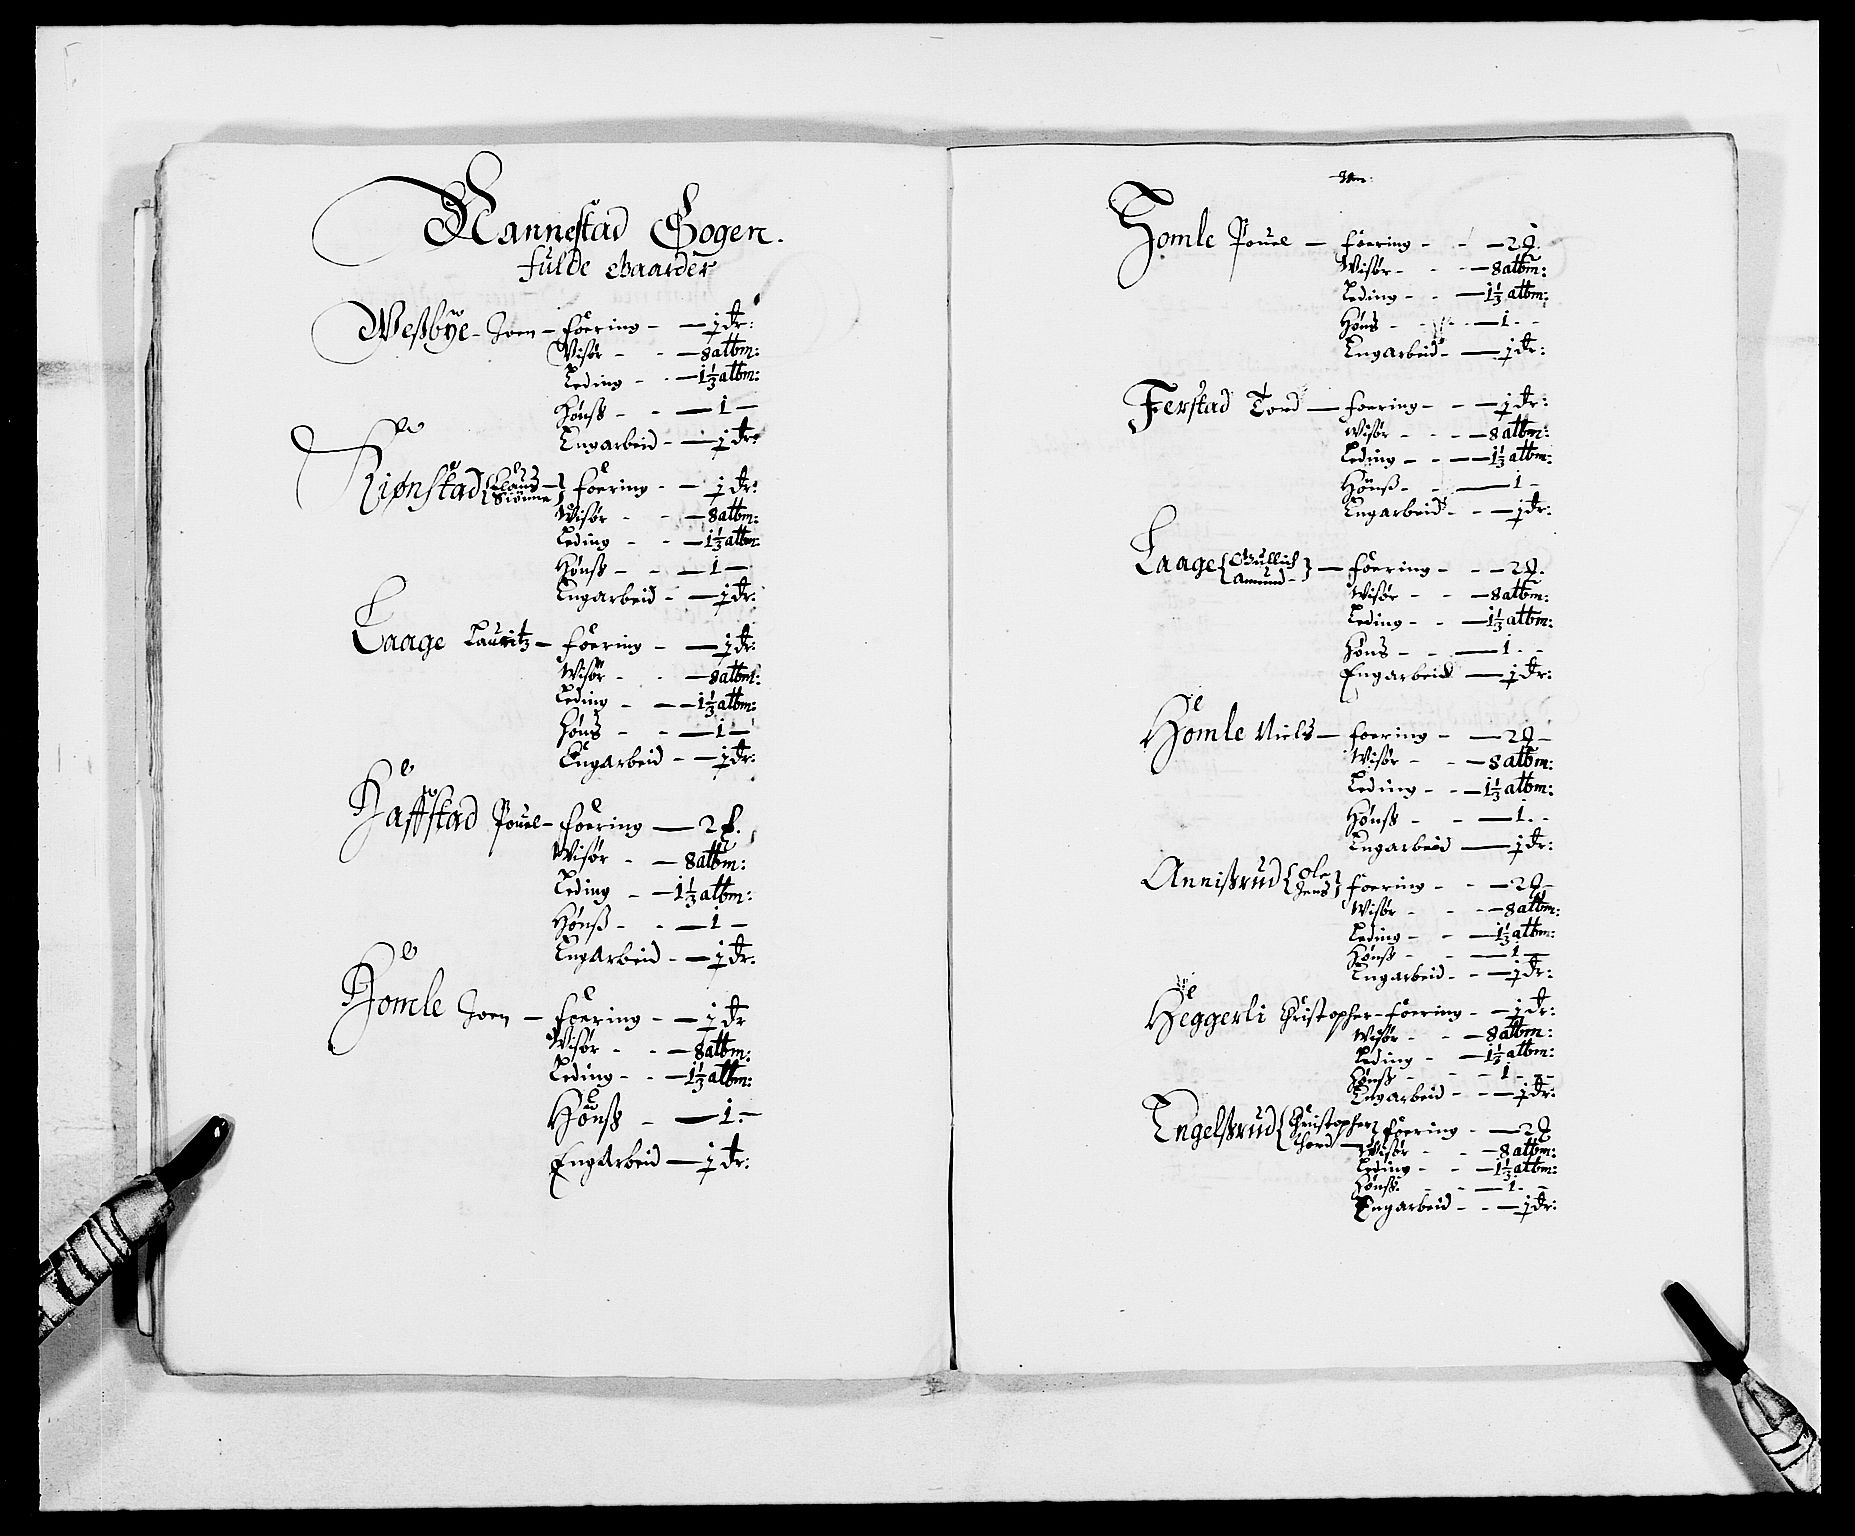 Nannestad Sogen.
fulde Gaarder
Weßbÿe Joen – foering – – 1 dr:
Visør – – 8 albm:
Leding – – 1⅓ albm:
Hønß – – 1 –
Engarbeid – 1 dr:
Kiønstad { Claus Siønne } foering – – 1 dr:
Wisør – – 8 albm:
Leding – – 1⅓ albm:
Hønß – – 1 –
Engarbeid – 1 dr:
Laage Lauritz – foering – 1 dr:
Wisør – – 8 albm:
Leding – – 1⅓ albm:
Høns – – 1 –
Engarbeid – – 1 dr:
Haffstad Pouel – foering – 2
Wisør – – 8 albm:
Leding – 1⅓ albm:
Hønß – – 1 –
Engarbeid – – 1 dr:
Homle Joen – foering – – 1 dr
Wisør – – 8 albm:
Leding – – 1⅓ albm:
Hønß – 1 –
Engarbeid – 1 dr:
Homle Pouel – foering – – 2
Wisør – – 8 albm:
Leding – – 1⅓ albm:
Høns – – 1 –
Engarbeid – 1 dr:
Ferstad Tord – foering – – 1 dr:
Wisør – – 8 albm:
Leding – – 1⅓ albm:
Hønß – – 1 –
Engarbeid – – 1 dr:
Laage { Gullich Amund } – foering – – 2
Wisør – – 8 albm:
Leding – – 1⅓ albm:
Høns – – 1 –
Engarbeid – 1 dr:
Homle Niels – foering – – 2
Wisør – – 8 albm:
Leding – – 1⅓ albm:
Hønß – – 1 –
Engarbeid – 1 dr:
Annißrud { Ole Jens } foering – – 2
Wisør – – 8 albm:
Leding – – 1⅓ albm:
Hønß – – 1 –
Engarbeid – – 1 dr:
Heggerli Christopher – foering – – 1 dr:
Wisør – – 8 albm:
Leding – 1⅓ albm:
Hønß – – 1 –
Engarbeid – – 1 dr:
Engelßrud { Christopher Thord foering – 2
Wisør – – 8 albm:
Leding – – 1⅓ albm:
Hønß – – 1 –
Engarbeid – – 1 dr: